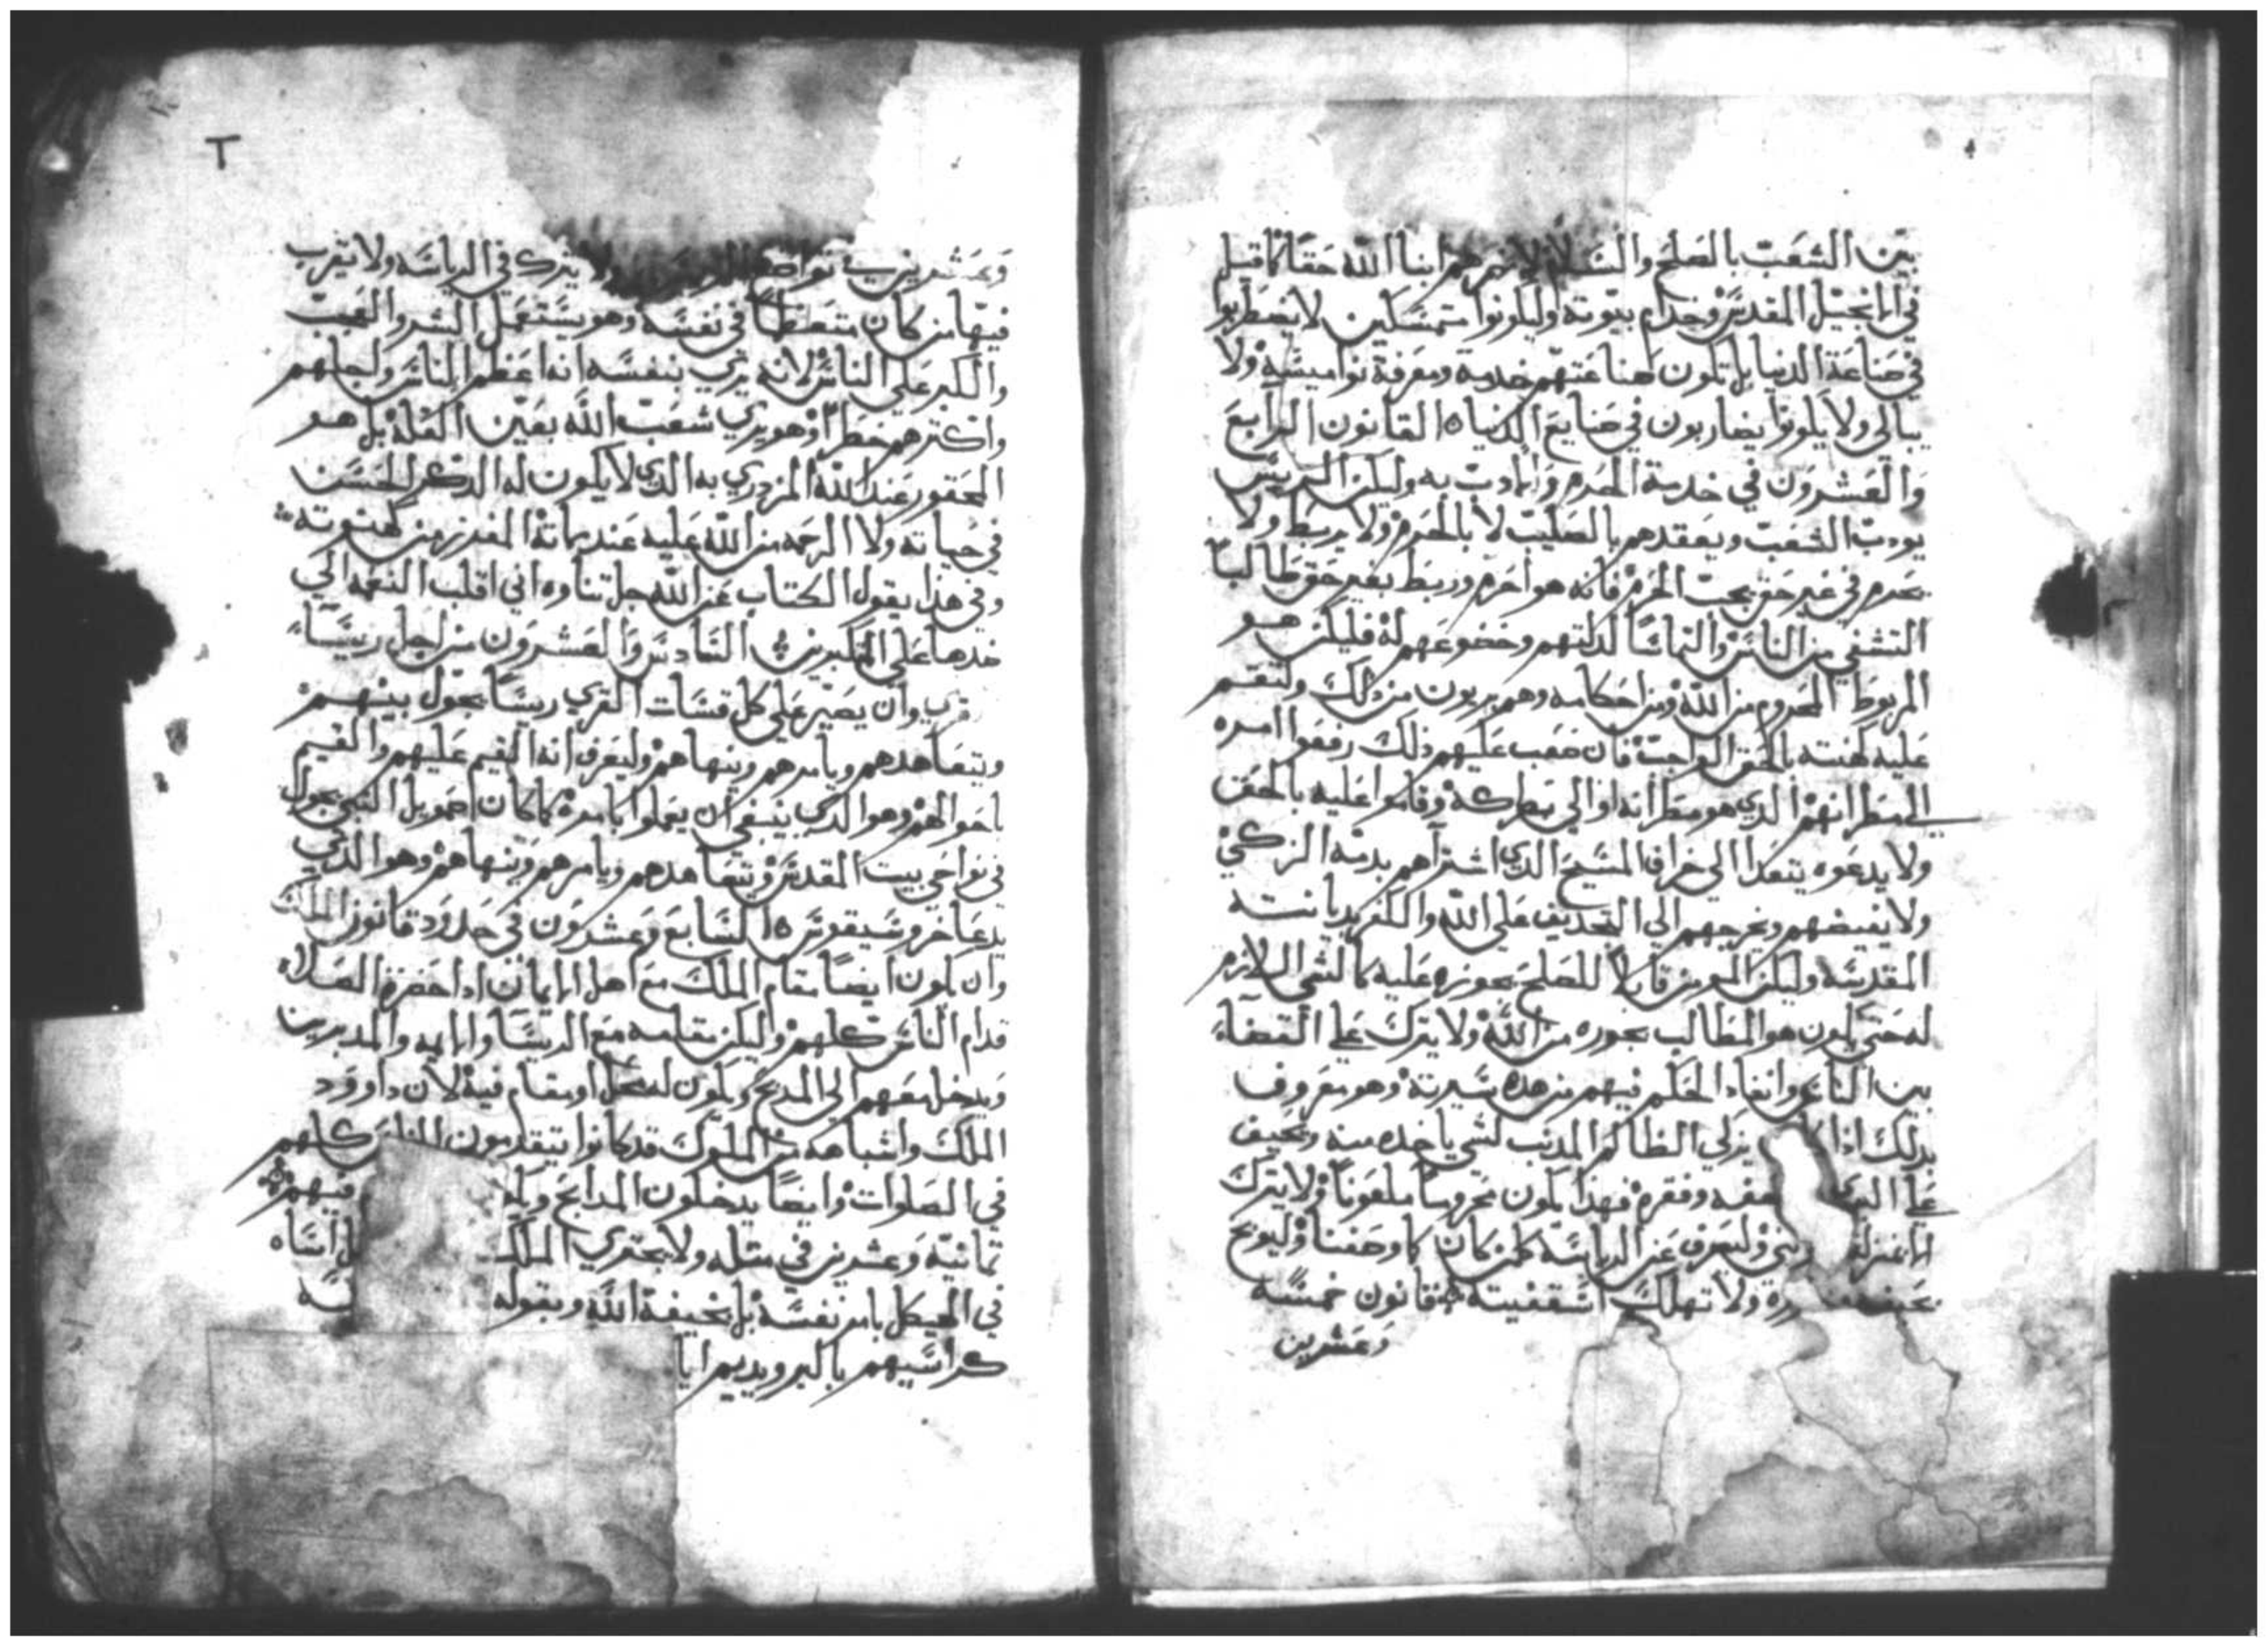 بين الشعب بالصلح والسلام لانهم هم ابنا الله حقا كما قيل
في الانجيل المقدس وخدام بيوته وليكونوا متمسكين لا يضطربوا
في صناعة الدنيا بل تكون صناعتهم خدمته ومعرفة نواميسه ولا
يبالي ولا يكونوا يضاربون في صنايع الدنيا ه القانون الرابع
والعشرون في خدمة الحرم والادب به وليكن الريس
يودب الشعب ويعقدهم بالصليب لا بالحرم ولا يربط ولا
يحرم في غير حق يجب الحرم فانه هو احرم وربط بغير حق طالبا
التشفي من الناس والتماسا لدلتهم وخضوعهم له فليكن هو
المربوط المحروم من الله ومن احكامه وهم بريون من ذلك ولتقم
عليه كهنته بالحق الواجب فان صعب عليهم ذلك رفعوا امره
الي مطرانهم الدي هو مطرانه او الي بطاركة وقاموا عليه بالحق
ولا يدعوه يتعدا الي خراف المسيح الدي اشتراهم بدمه الزكي
ولا يغيضهم ويخرجهم الي التجديف علي الله والكفر بديانته
المقدسه وليكن المحرمن قابلا للصلح بجوزه عليه كالشي اللازم
له حتي يكون هو المطالب بجوره من الله ولا يترك علي القضاء
بين الناس وانفاد الحكم فيهم من هده سيرته وهو معروف
بدلك اذا يزكي الظالم المدنب لشي ياخده منه ويحيف
علي البري ضعفه وفقره فهذا يكون محروما ملعونا ولا يترك
وليصرف عن الرياسه كلمن كان كاوحفنا وليوبخ
ولا تهلك اسقفيته قانون خمسه
وعشرين
وعشرين تواضع ولا يترك في الرياسه ولا يقرب
فيها من كان متعظما في نفسه وهو يستعمل الشر والعيب
والكبر علي الناس لانه يري بنفسه انه اعظم الناس واجلهم
واكترهم خطرا وهو يري شعب الله بعين القله بل هو
المحقور عند الله المزدري به الدي لا يكون له الدكر الحسن
في حياته ولا الرحمه من الله عليه عند مماته المفرز من كهنوته
وفي هذا يقول الكتاب عن الله جل تناوه اني اقلب النعمه الي
ضدها علي المتكبرين السادس والعشرون من اجل ريسا
قري وان يصير علي كل قسات القري ريسا يجول بينهم
ويتعاهدهم ويامرهم وينهاهم وليعرف انه القيم عليهم والقيم
باحوالهم وهو الدي ينبغي ان يعملوا بامره كما كان اصمويل النبي يجول
في نواحي بيت المقدس ويتعاهدهم ويامرهم وينهاهم وهو الدي
يدعا خروسيقوس ه السابع وعشرون في حدود قانون الملك
وان يكون ايضا مقام الملك مع اهل الايمان اذا حضره الصلاه
قدام الناس كلهم وليكن مقامه مع الريسا والايمه والمدبرين
ويدخل معهم الي المدبح ويكون له محل او مقام فيه لان داوود
الملك واشباهه من الملوك قد كانوا يتقدمون الناس كلهم
في الصلوات وايضا يدخلون المدابح فيهم
تمانيه وعشرين في متله ولا يجتري الملك
في الهيكل بامر نفسه بل بخيفة الله وبقوله
كراسيهم بالكبر ويديم